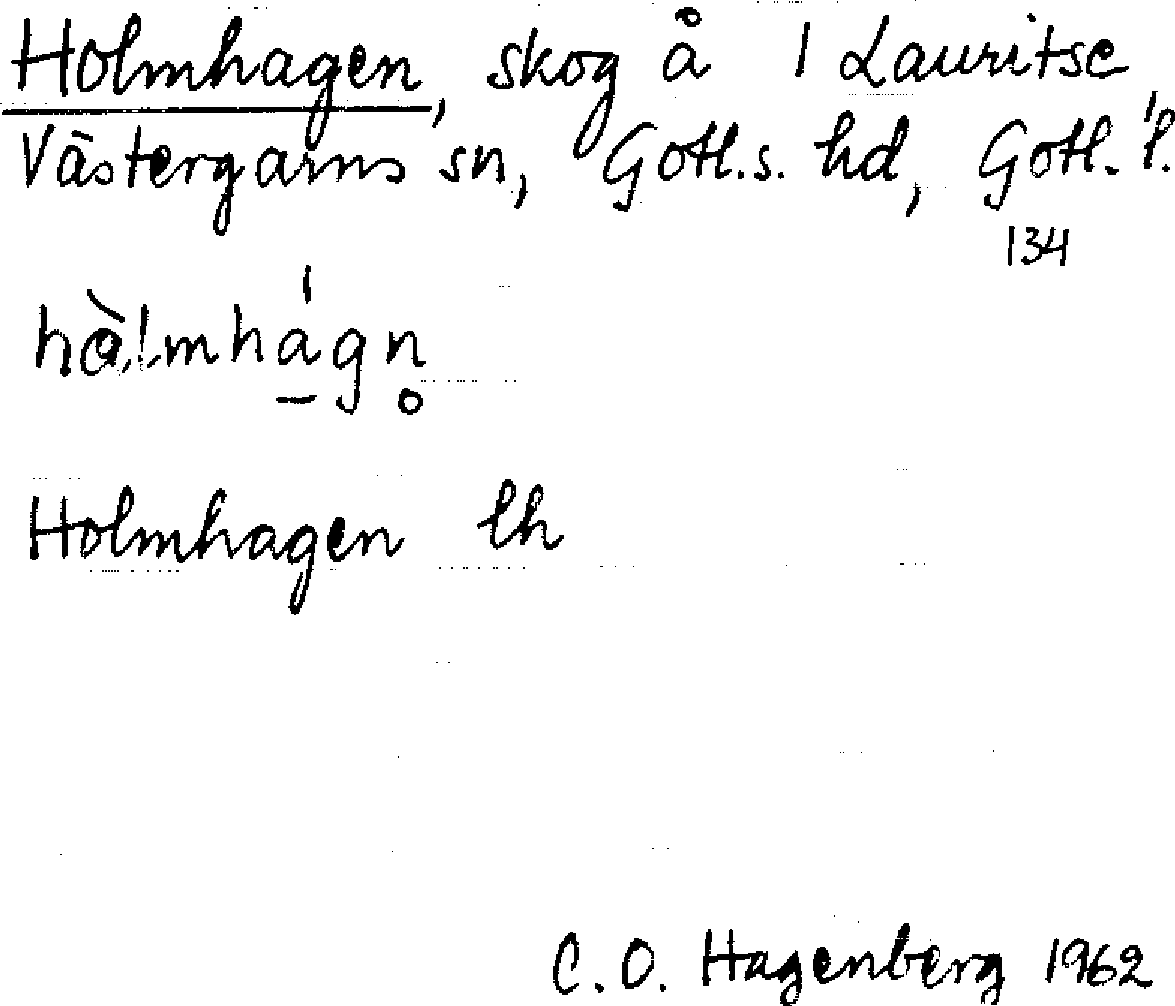 Holmhagen, skog å 1 Lauritse,
Västergarns sn, Gotl.s. hd, Gotl. l.
134
hòlmhágn̥
Holmhagen lh
C. O. Hagenberg 1962